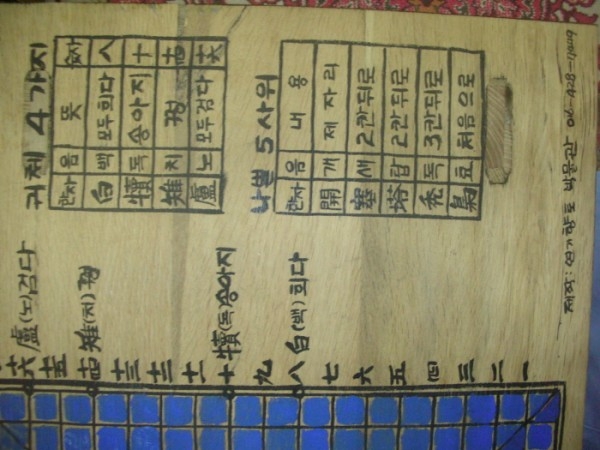 귀체 4가지
한자 음 뜻 숫자
白 백 모두희다 八
犢 독 송아지 十
雉 치 꿩 十四
盧 노 모두검다 十六
나쁠 5사위
한자 음 내용
開 개 제자리
塞 새 2칸뒤로
塔 탑 2칸뒤로
禿 독 3칸뒤로
梟 효 처음으로
十六 盧(노)검다
十五
十四 雉(치)꿩
十三
十二
十一
十 犢(독)송아지
九
八 白(백)희다
七
六
五
四
三
二
一
제작: 연기향토 박물관